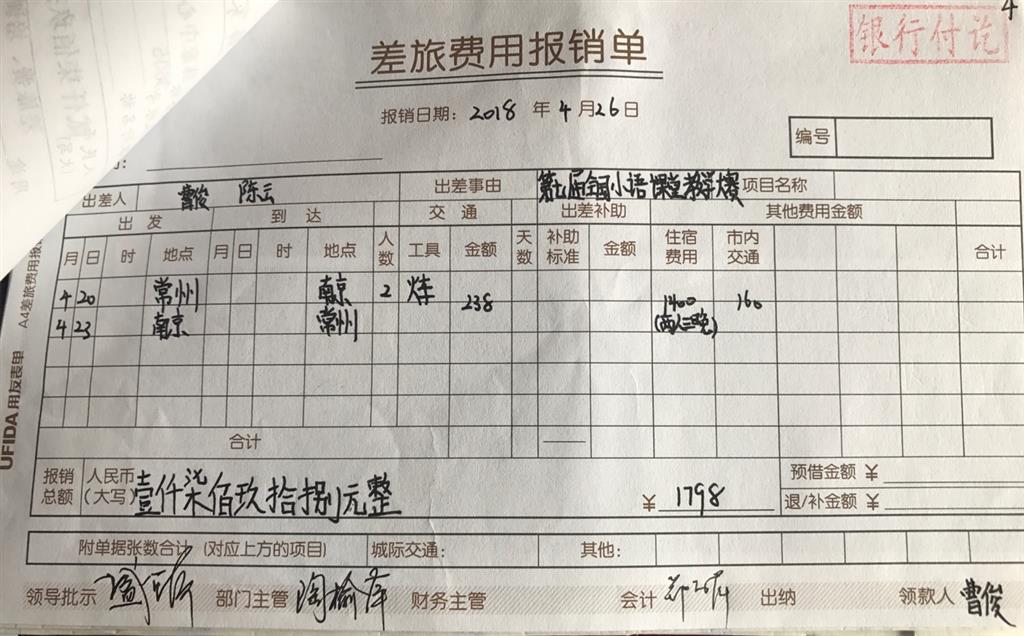 4
银行付讫
差旅费用报销单
报销日期：2018 年 4 月 26 日
编号
出差人 曹俊 陈云 出差事由 第七届全国小语课堂教学大赛 项目名称
出 发 到 达 交 通 出差补助 其他费用金额
月 日 时 地点 月 日 时 地点 人数 工具 金额 天数 补助标准 金额 住宿费用 市内交通 合计
4 20 常州 南京 2 火车 238 1400 160
4 23 南京 常州 (两人三晚)
合计
报销总额 人民币（大写）壹仟柒佰玖拾捌元整 ¥ 1798 预借金额 ¥
退/补金额 ¥
附单据张数合计（对应上方的项目） 城际交通： 其他：
领导批示 部门主管 陶榆萍 财务主管 会计 出纳 领款人 曹俊
UFIDA 用友表单 A4差旅费用报